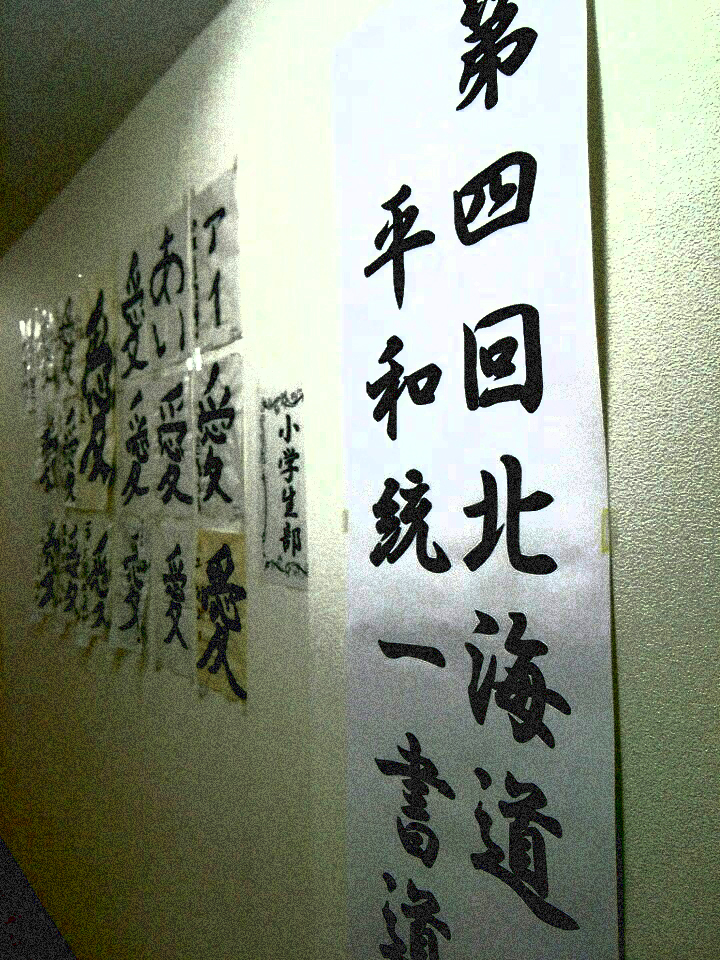 第四回北海道
平和統一書道
小学生部
アイ
愛
愛
あい
愛
愛
愛
愛
愛
愛
愛